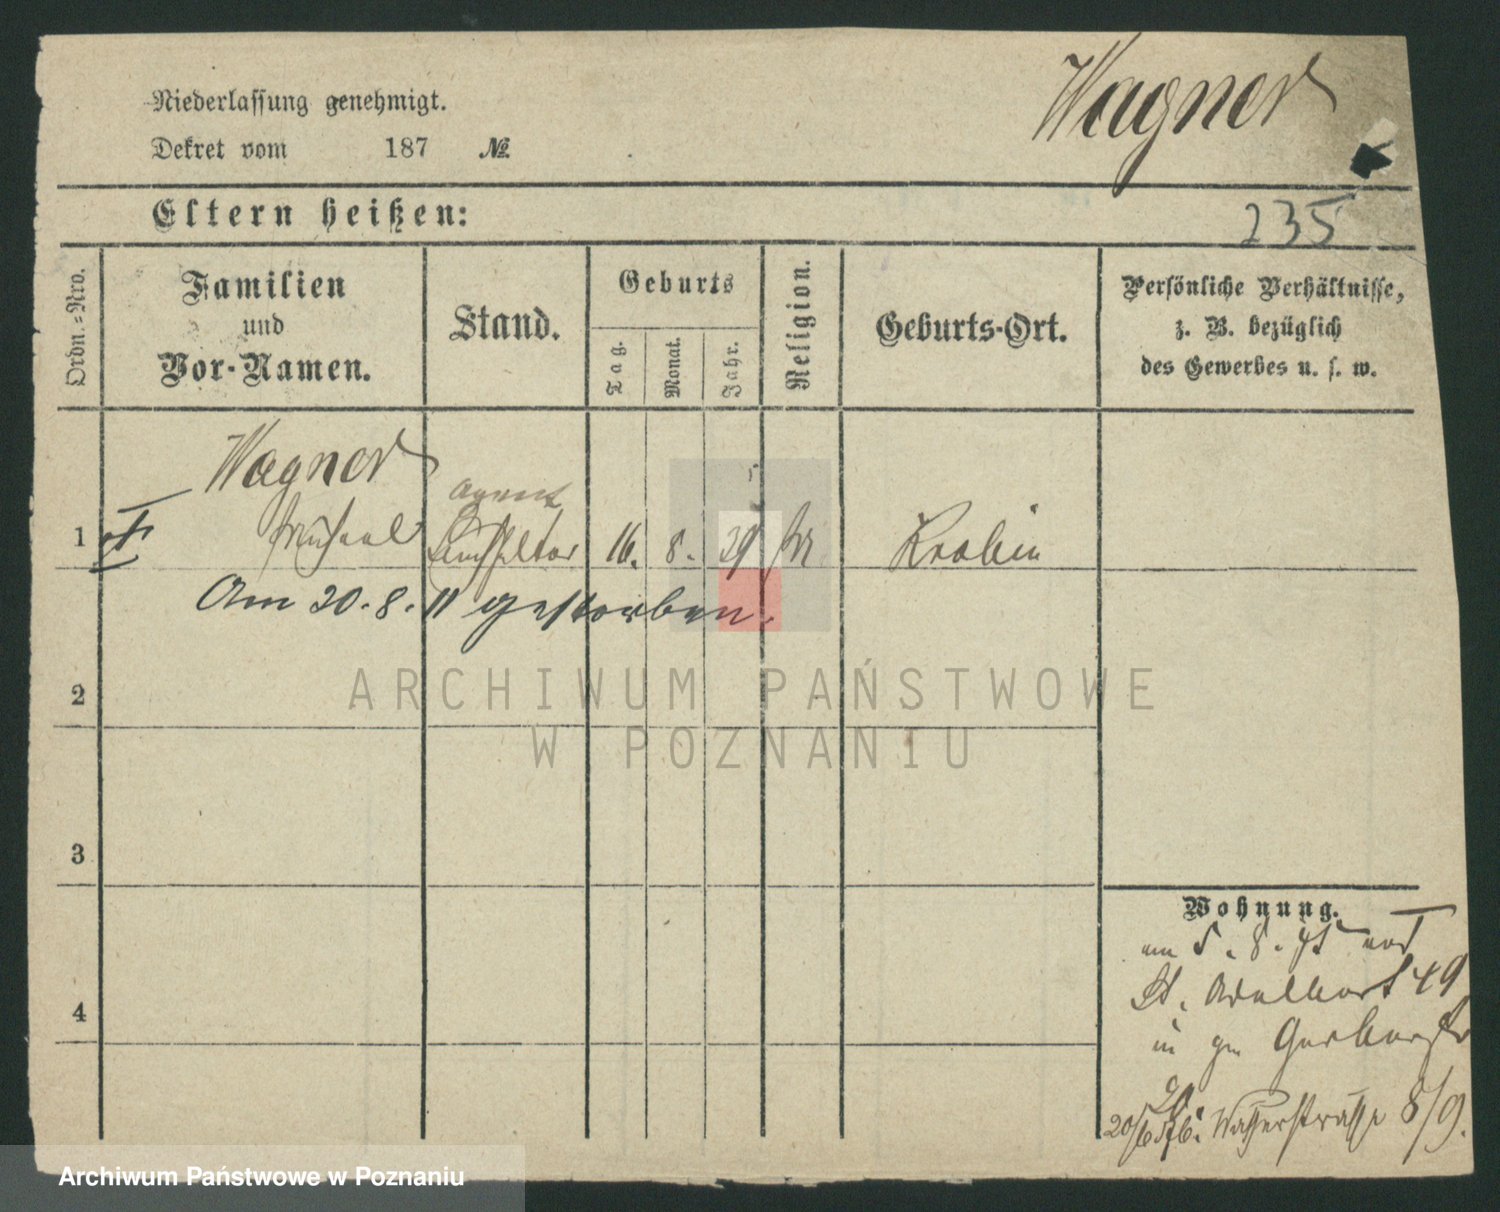 Wagner
Niederlassung genehmigt.
Dekret vom 187 №
Eltern heißen:
235
Ordn.-Nro.
Familien
und
Vor-Namen.
Stand.
Geburts
Tag.
Monat.
Jahr.
Religion.
Geburts-Ort.
Persönliche Verhältnisse,
z. B. bezüglich
des Gewerbes u. s. w.
Wagner
Agent
1 Michael 16. 8. 39 Kroben
Am 20. 8. 11 gestorben.
2
3
4
Wohnung.
am 5. 8.
St. Adalbert 49
in gr Gerberstr
20/6 Wasserstrasse 8/9.
ARCHIWUM PAŃSTWOWE
W POZNANIU
Archiwum Państwowe w Poznaniu